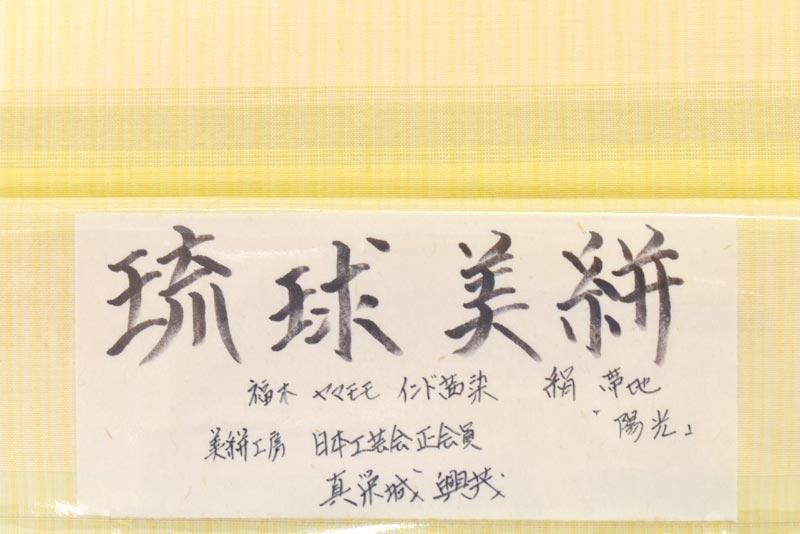 琉球美絣
福木 ヤマモモ インド茜染 絹 帯地
「陽光」
美絣工房 日本工芸会正会員
真栄城 興茂